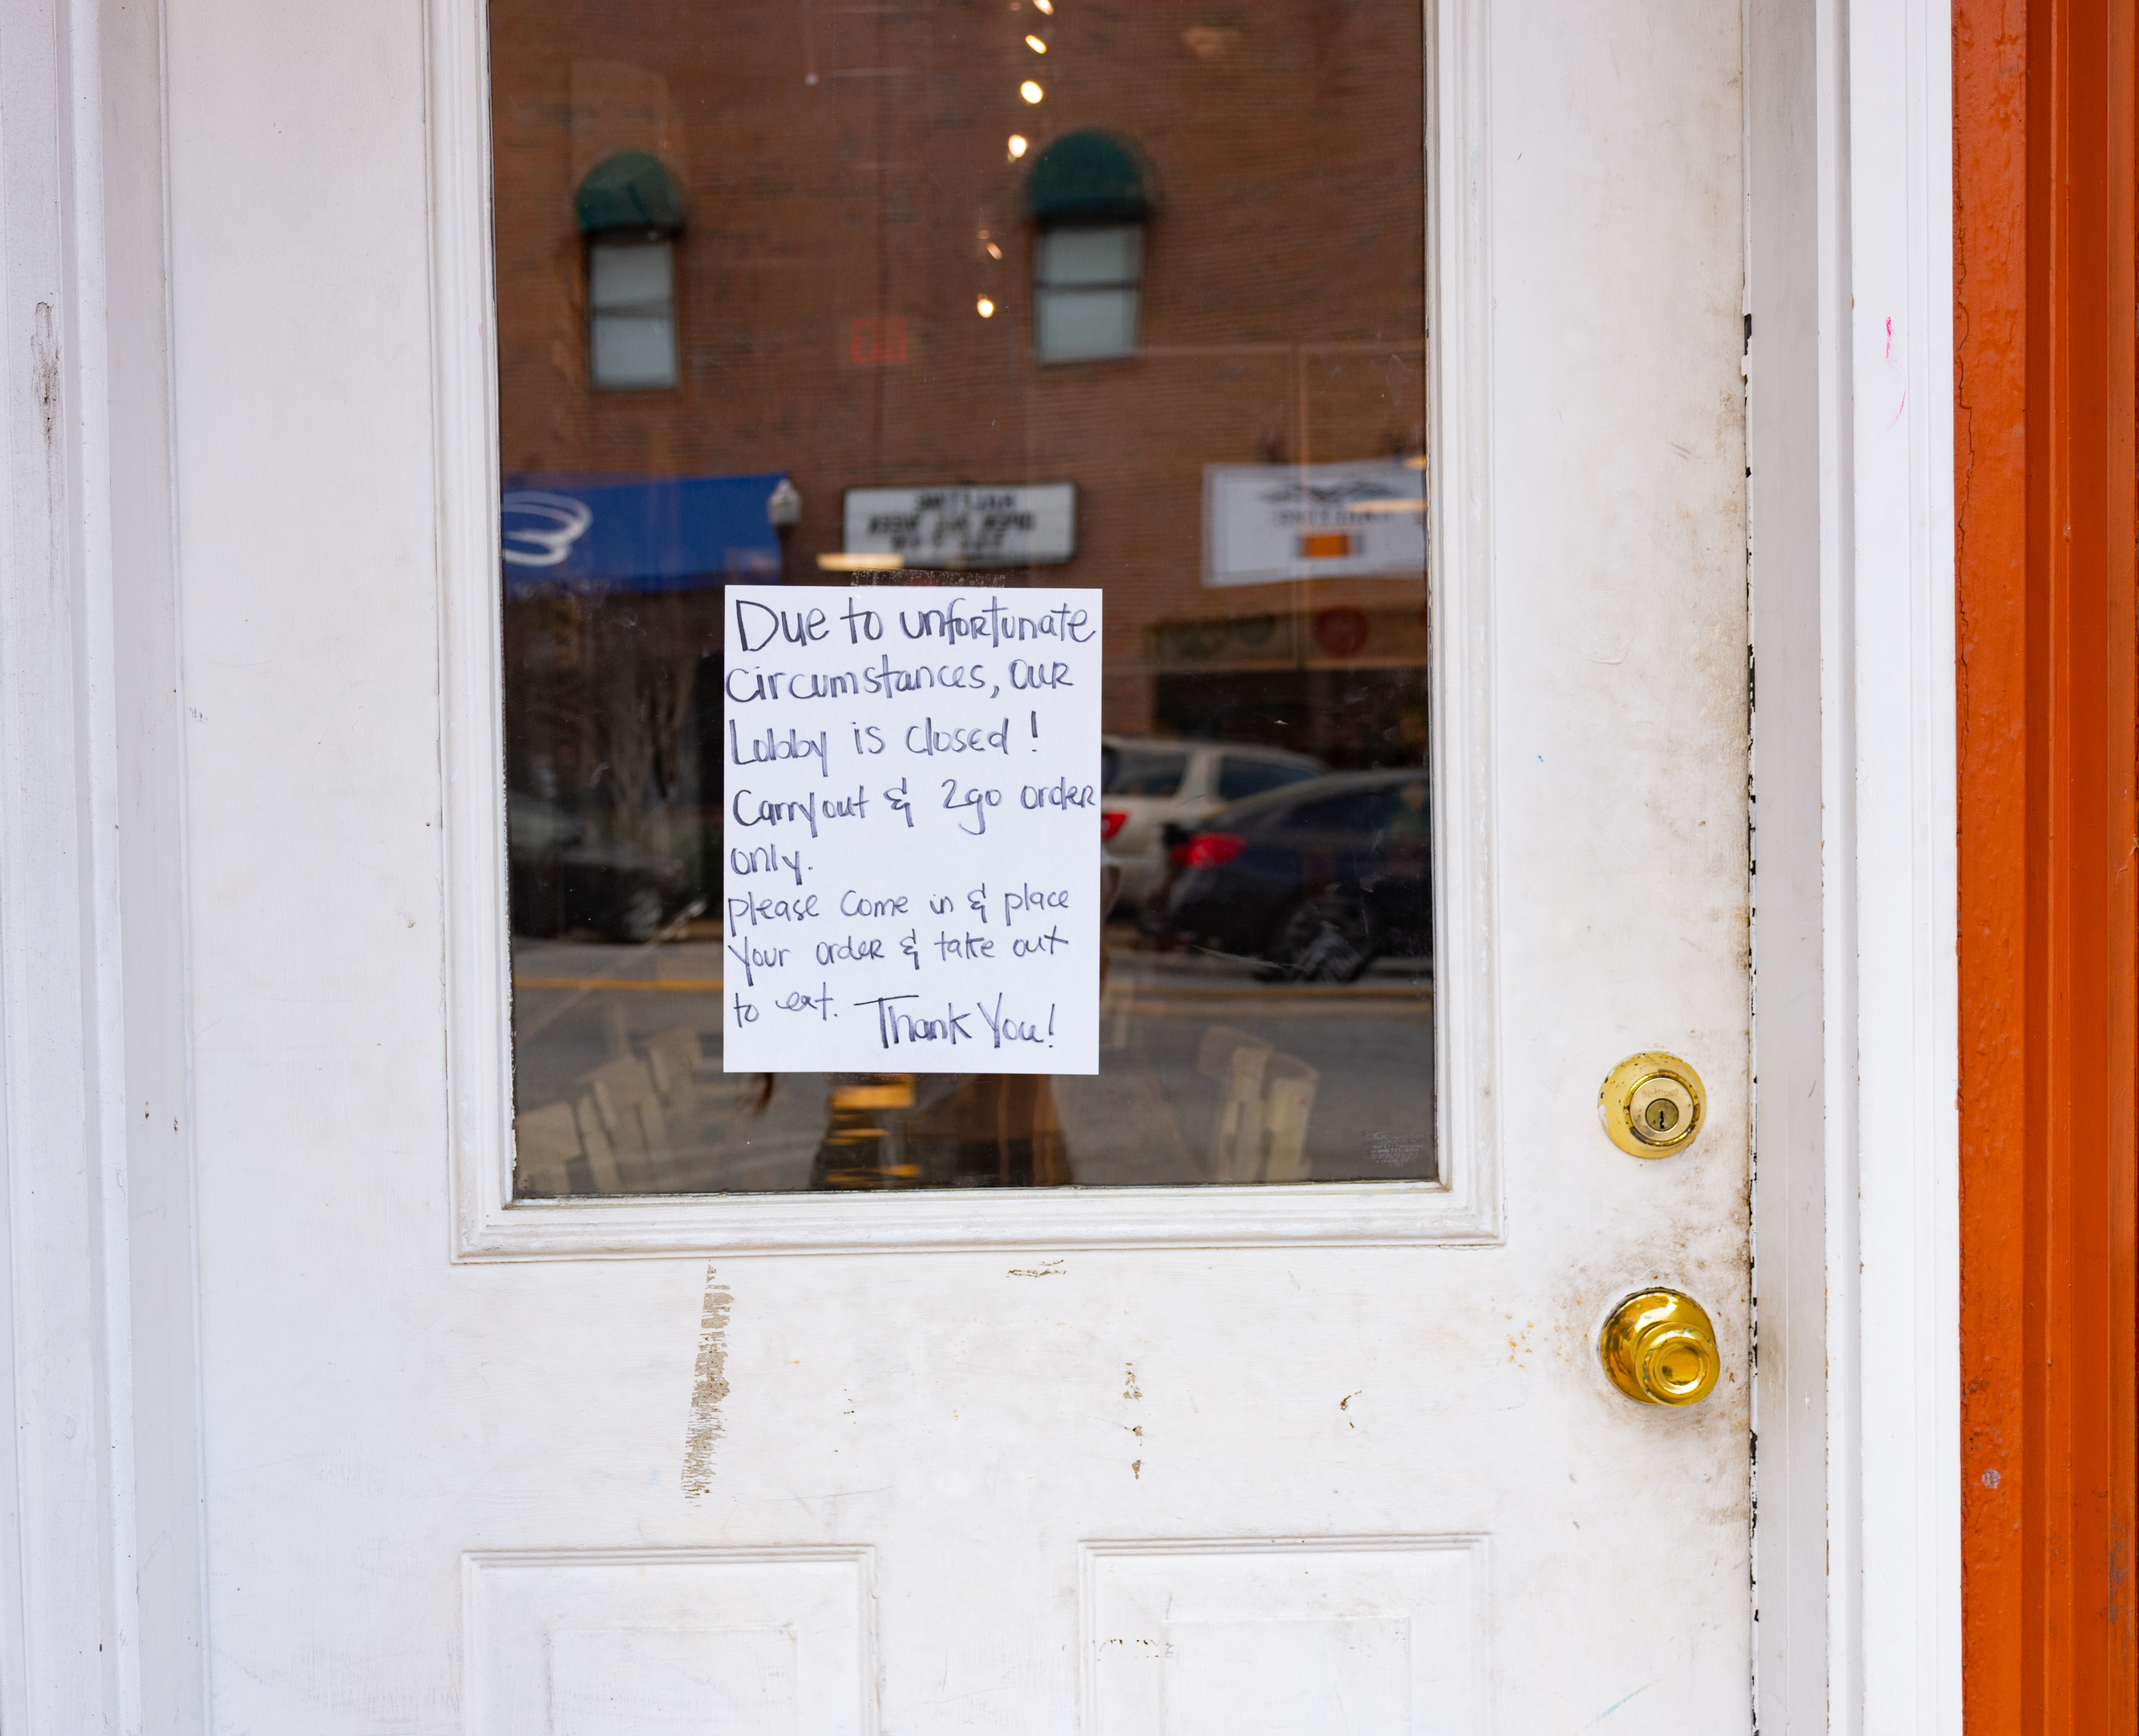 Due to unfortunate
Circumstances, our
Lobby is closed!
Carryout & 2go order
only.
please come in & place
Your order & take out
to eat. Thank You!